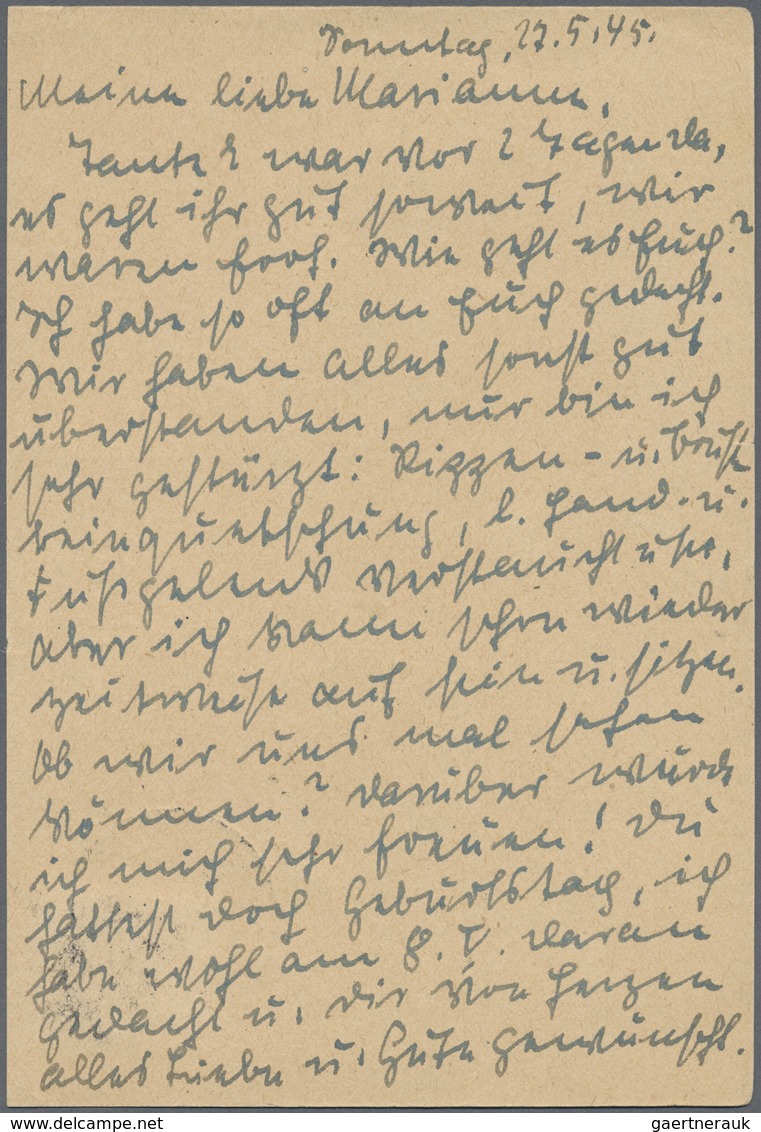 Sonntag, 27.5.45.
Meine liebe Marianne,
Tante war vor 2 Tagen da,
es geht ihr gut soweit, wir
waren froh. Wie geht es Euch?
Ich habe so oft an Euch gedacht.
Wir haben alles sonst gut
überstanden, nur bin ich
sehr gestürzt: Rippen- u. Brust-
beinquetschung, l. Hand- u.
Fußgelenk verstaucht usw.,
aber ich kann schon wieder
zeitweise auf sein u. sitzen.
Ob wir uns mal sehen
können? Darüber würde
ich mich sehr freuen! Du
hattest doch Geburtstag, ich
habe wohl am 8. V. daran
gedacht u. Dir von Herzen
alles Liebe u. Gute gewünscht.
www.delcampe.net
gaertnerauk